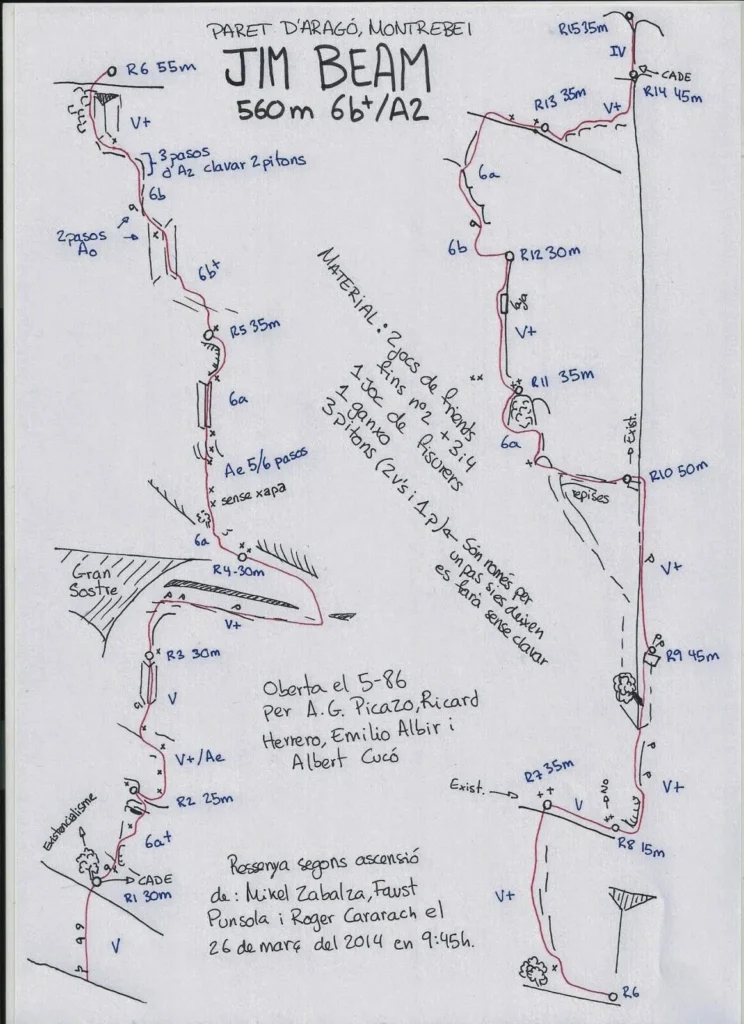 PARET D'ARAGÓ, MONTREBEI
JIM BEAM
560m 6b+/A2
R6 55m
V+
3 pasos
d'A2 clavar 2 pitons
6b
2 pasos
A0
6b+
R5 35m
6a
Ae 5/6 pasos
sense xapa
6a
R4-30m
Gran
Sostre
V+
R3 30m
V
V+/Ae
R2 25m
6a+
Existencialisme
CADE
R1 30m
V
MATERIAL: 2 jocs de friends
fins nº2 + 3 i 4
1 Joc de fisurers
1 ganxo
3 pitons (2 v's i 1 p) ← Són només per
un pas si es deixen
es farà sense clavar
Oberta el 5-86
per A.G. Picazo, Ricard
Herrero, Emilio Albir i
Albert Cucó
Ressenya segons ascensió
de: Mikel Zabalza, Faust
Punsola i Roger Cararach el
26 de març del 2014 en 9:45h.
R15 35m
IV
CADE
R14 45m
V+
R13 35m
6a
6b
R12 30m
V+
R11 35m
6a
Exist.
R10 50m
repises
V+
R9 45m
V+
R7 35m
Exist.
V
R8 15m
V+
R6